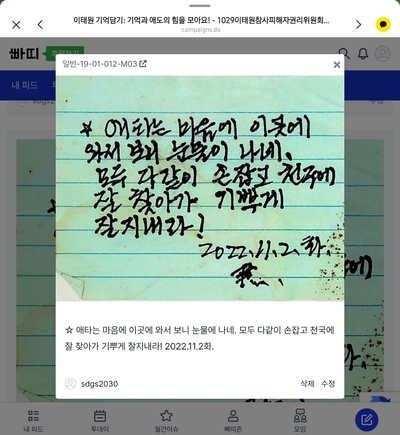 이태원 기억담기: 기억과 애도의 힘을 모아요! - 1029이태원참사피해자권리위원회...
campaigns.do
빠띠
내 피드
일반-19-01-012-M03
☆ 애타는 마음에 이곳에
와서 보니 눈물이 나네.
모두 다같이 손잡고 천국에
잘 찾아가 기쁘게
잘지내라!
2022.11.2.화.
☆ 애타는 마음에 이곳에 와서 보니 눈물에 나네. 모두 다같이 손잡고 천국에
잘 찾아가 기쁘게 잘지내라! 2022.11.2화.
sdgs2030
삭제
수정
내 피드
투데이
월간이슈
빠띠즌
모임